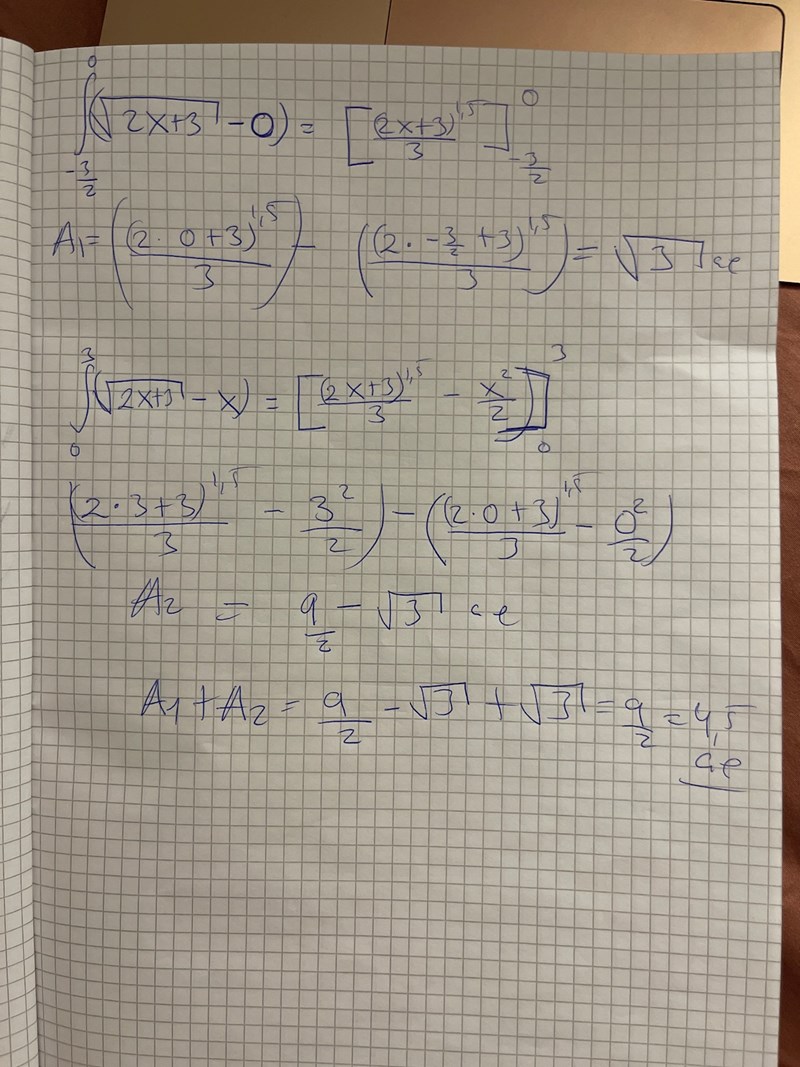 ∫_{-3/2}^{0} (√(2x+3) - 0) = [(2x+3)^{1,5}/3]_{-3/2}^{0}
A₁ = ((2·0+3)^{1,5}/3) - ((2·-3/2+3)^{1,5}/3) = √3 ae
∫_{0}^{3} (√(2x+3) - x) = [(2x+3)^{1,5}/3 - x²/2)]_{0}^{3}
((2·3+3)^{1,5}/3 - 3²/2) - ((2·0+3)^{1,5}/3 - 0²/2)
A₂ = 9/2 - √3 ae
A₁+A₂ = 9/2 - √3 + √3 = 9/2 = 4,5
ae